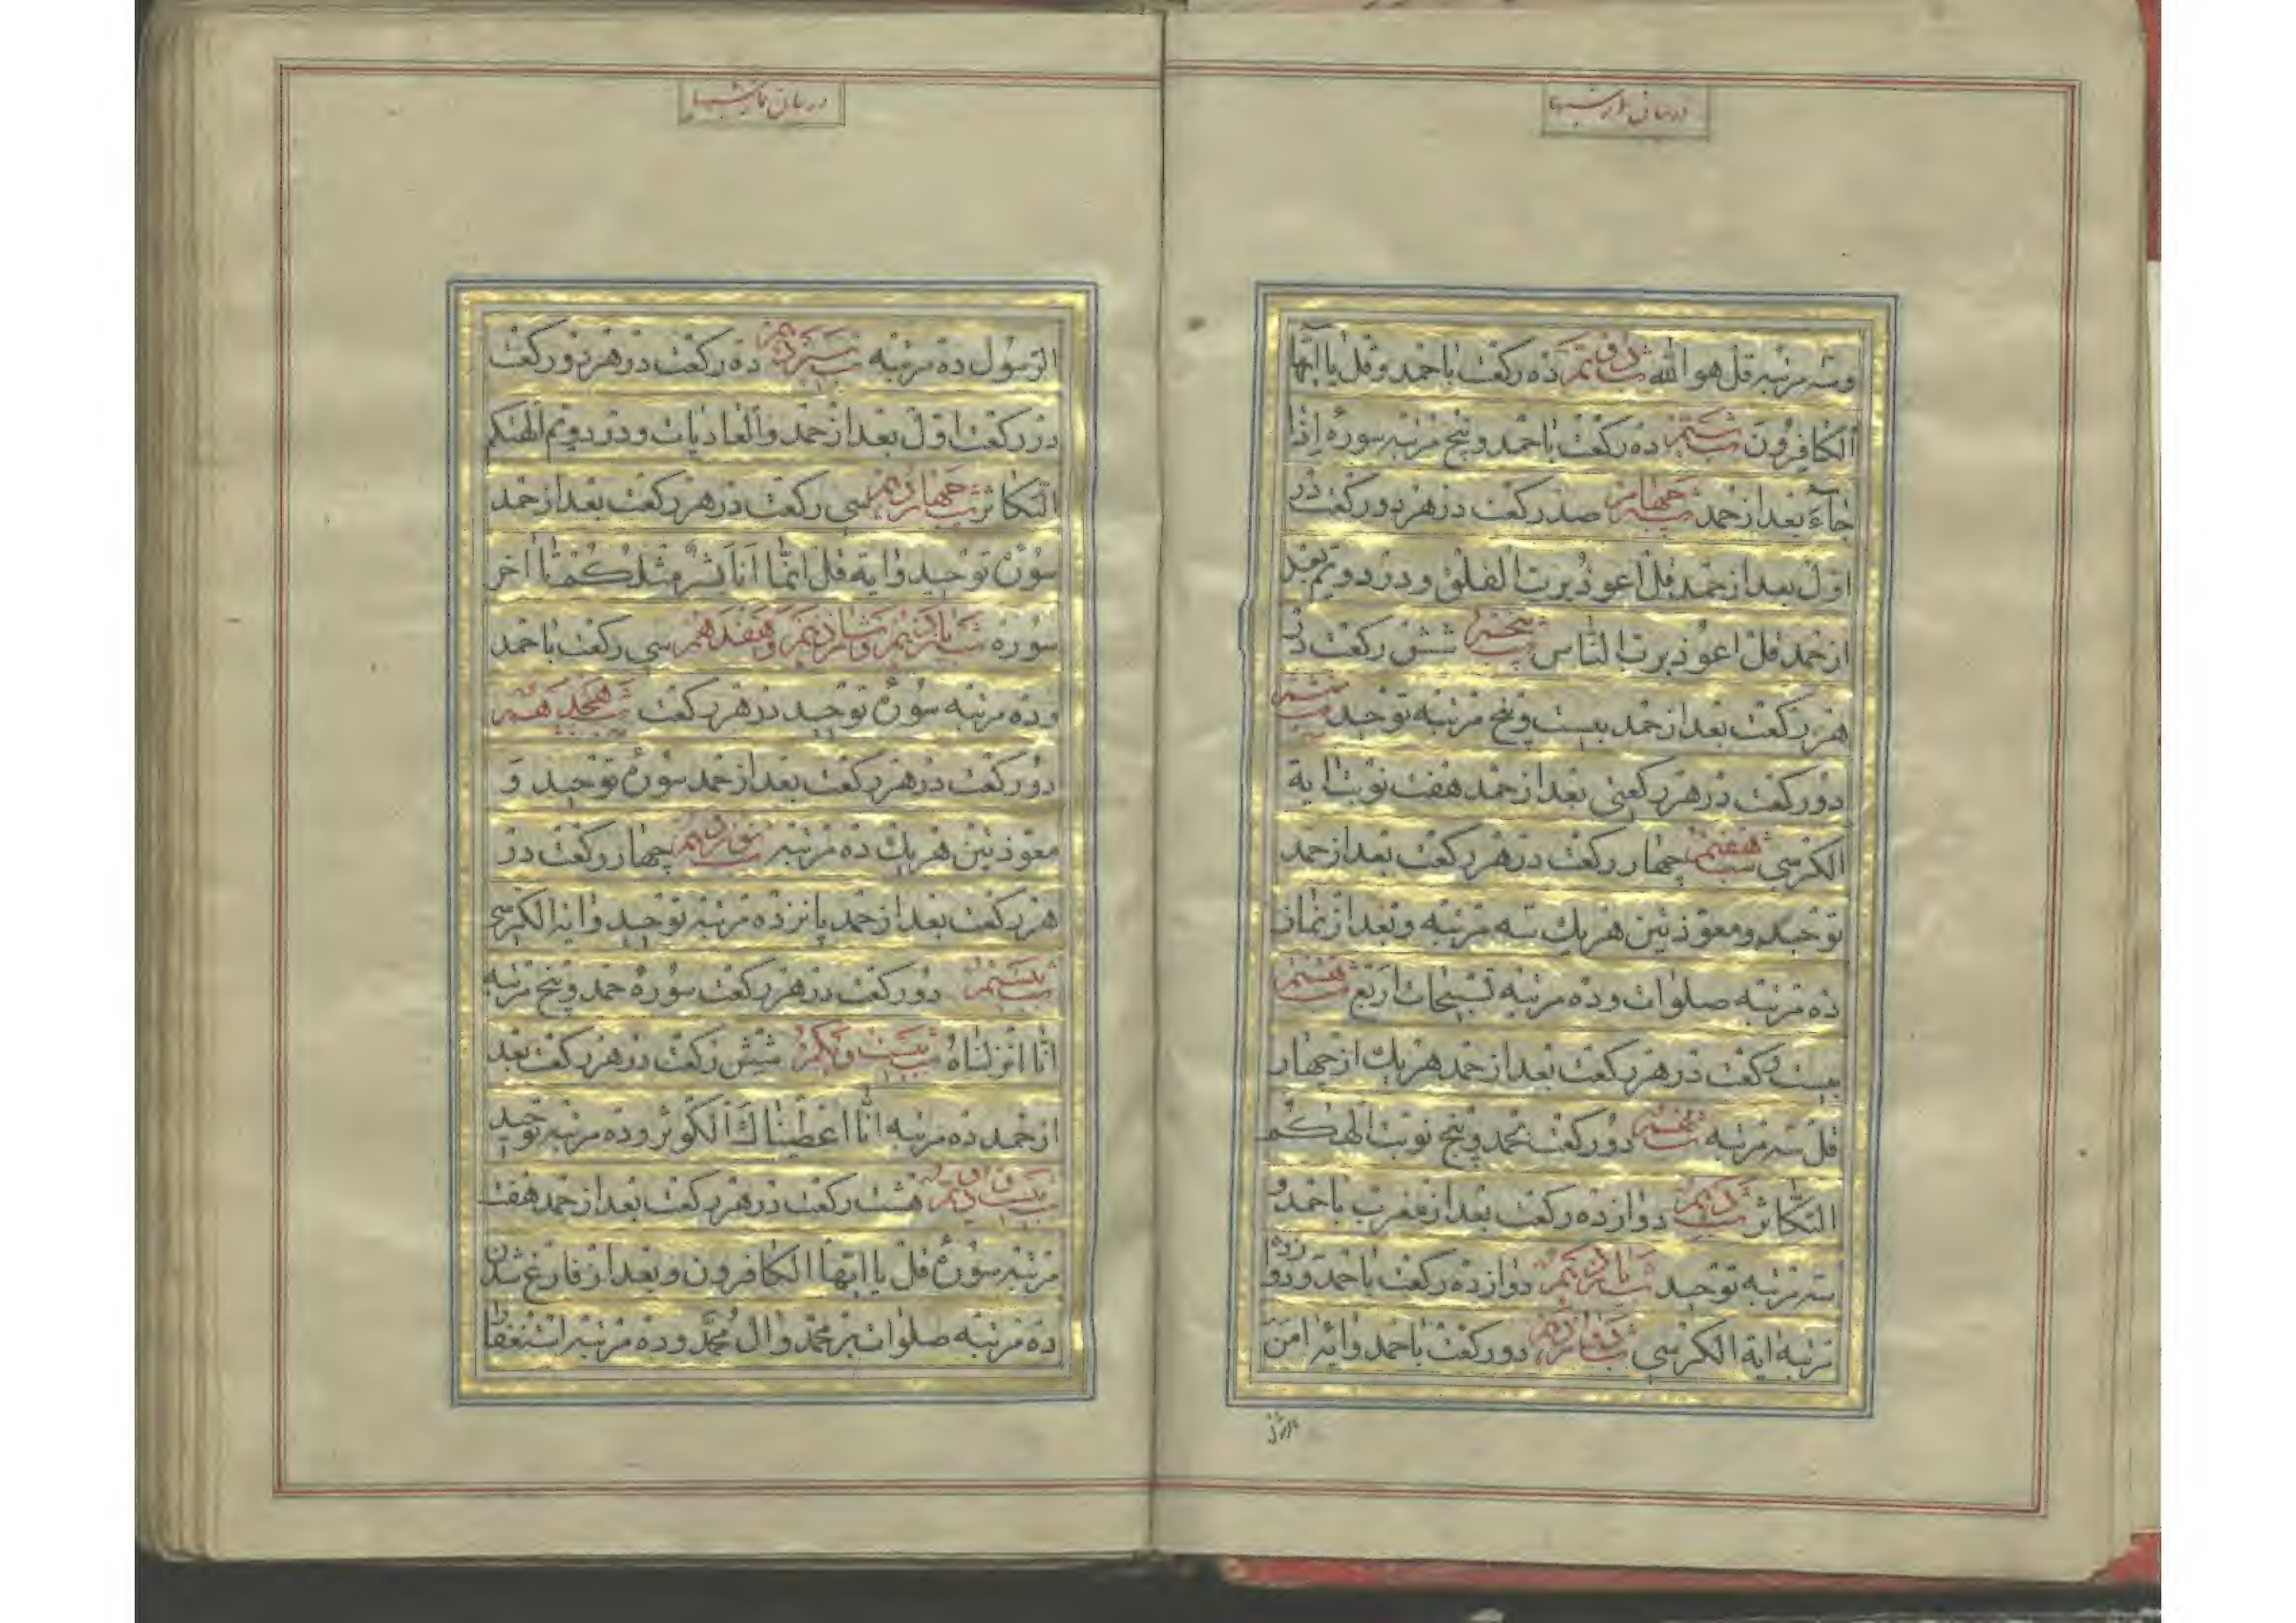 در بیان نماز شبها
وسه مرتبه قل هو الله شب دویم ده رکعت با حمد و قل یا ایها
الکافرون شب سیم ده رکعت با حمد و پنج مرتبه سوره اذا
جآء بعد از حمد شب چهارم صد رکعت در هر دو رکعت در
اول بعد از حمد قل اعوذ برب الفلق و در دویم بعد
از حمد قل اعوذ برب الناس شب پنجم شش رکعت در
هر رکعت بعد از حمد بیست و پنج مرتبه توحید شب ششم
دو رکعت در هر رکعتی بعد از حمد هفت نوبت ایة
الکرسی شب هفتم چهار رکعت در هر رکعت بعد از حمد
توحید و معوذتین هر یك سه مرتبه و بعد از نماز
ده مرتبه صلوات و ده مرتبه تسبیحات اربع شب هشتم
بیست رکعت در هر رکعت بعد از حمد هر یك از چهار
قل سه مرتبه شب نهم دو رکعت بحمد و پنج نوبت الهیکم
التکاثر شب دهم دوازده رکعت بعد از مغرب با حمد و
سه مرتبه توحید شب یازدهم دوازده رکعت با حمد و دوازده
مرتبه ایة الکرسی شب دوازدهم دو رکعت با حمد و ایه امن
الرسول
در بیان نماز شبها
الرسول ده مرتبه شب سیزدهم ده رکعت در هر دو رکعت
در رکعت اول بعد از حمد والعادیات و در دویم الهیکم
التکاثر شب چهاردهم سی رکعت در هر رکعت بعد از حمد
سورهٔ توحید و ایه قل انما انا بشر مثلکم تا اخر
سوره شب پانزدهم و شانزدهم و هفدهم سی رکعت با حمد
و ده مرتبه سورهٔ توحید در هر رکعت شب هیجدهم
دو رکعت در هر رکعت بعد از حمد سورهٔ توحید و
معوذتین هر یك ده مرتبه شب نوزدهم چهار رکعت در
هر رکعت بعد از حمد پانزده مرتبه توحید و ایه الکرسی
شب بیستم دو رکعت در هر رکعت سورهٔ حمد و پنج مرتبه
انا انزلناه شب بیست و یکم شش رکعت در هر رکعت بعد
از حمد ده مرتبه انا اعطیناك الکوثر و ده مرتبه توحید
شب بیست و دویم هشت رکعت در هر رکعت بعد از حمد هفت
مرتبه سورهٔ قل یا ایها الکافرون و بعد از فارغ شدن
ده مرتبه صلوات بر محمد و ال محمد و ده مرتبه استغفار